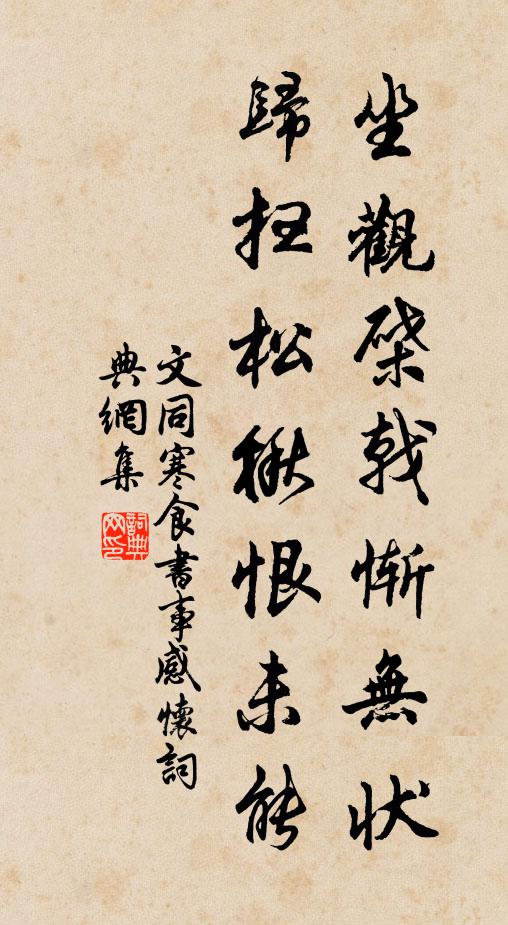 坐觀棨戟慚無狀
歸掃松楸恨未能
文同寒食書事感懷詞
典網集
詞典
网印